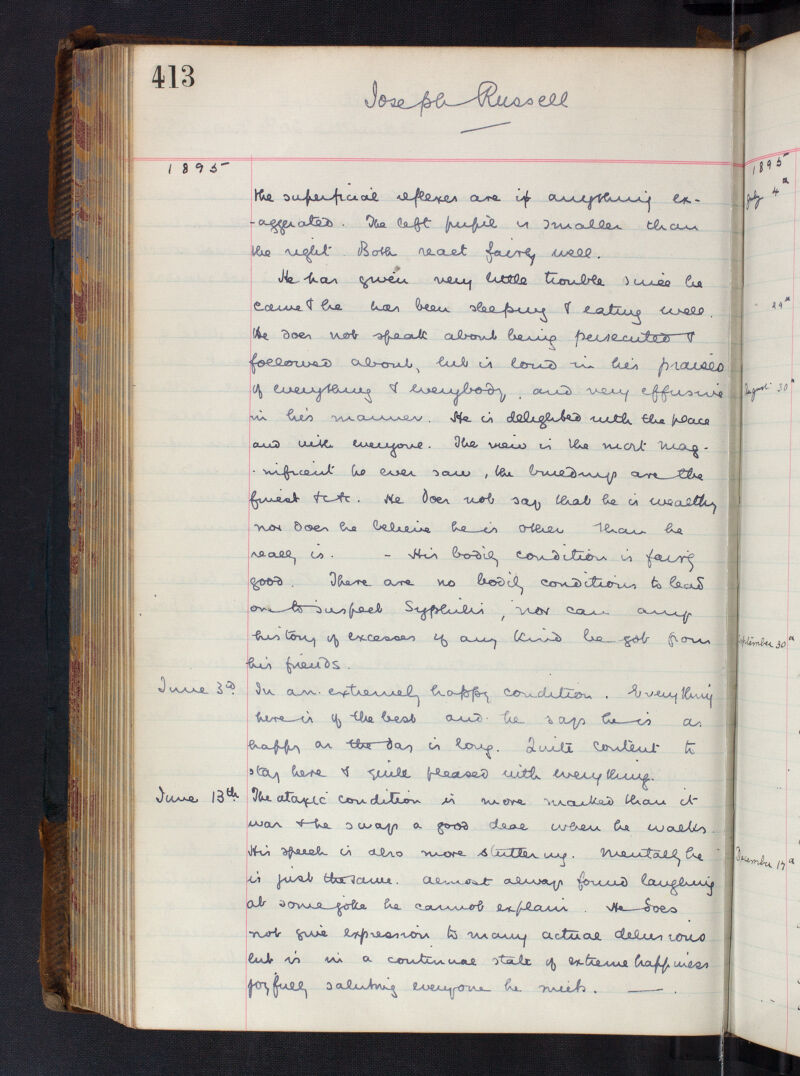 413
Joseph Russell
1895
the superficial reflexes are if anything ex-
-aggerated. The left pupil is smaller than
the right. Both react fairly well.
He has given very little trouble since he
came & he has been sleeping & eating well.
He does not speak about being persecuted &
followed about, but is loud in his praises
of everything & everybody, and very effusive
in his manner. He is delighted with the place
and with everyone. The view is the most mag-
-nificent he ever saw, the buildings are the
finest &c &c. He does not say that he is wealthy
nor does he believe he is other than he
really is. - His bodily condition is fairly
good. There are no bodily conditions to lead
one to suspect Syphilis, nor can any
history of excesses of any kind be got from
his friends.
June 3d. In an extremely happy condition. Everything
here is of the best and he says he is as
happy as the day is long. Quite content to
stay here & quite pleased with everything.
June 13th. The ataxic condition is more marked than it
was & he sways a good deal when he walks.
His speech is also more stuttering. Mentally he
is just the same. Almost always found laughing
at some joke he cannot explain. He does
not give expression to many actual delusions
but is in a continual state of extreme happiness
joyfully saluting everyone he meets. —.
1895
July 4th
29th
August 30th
September 30th
December 19th